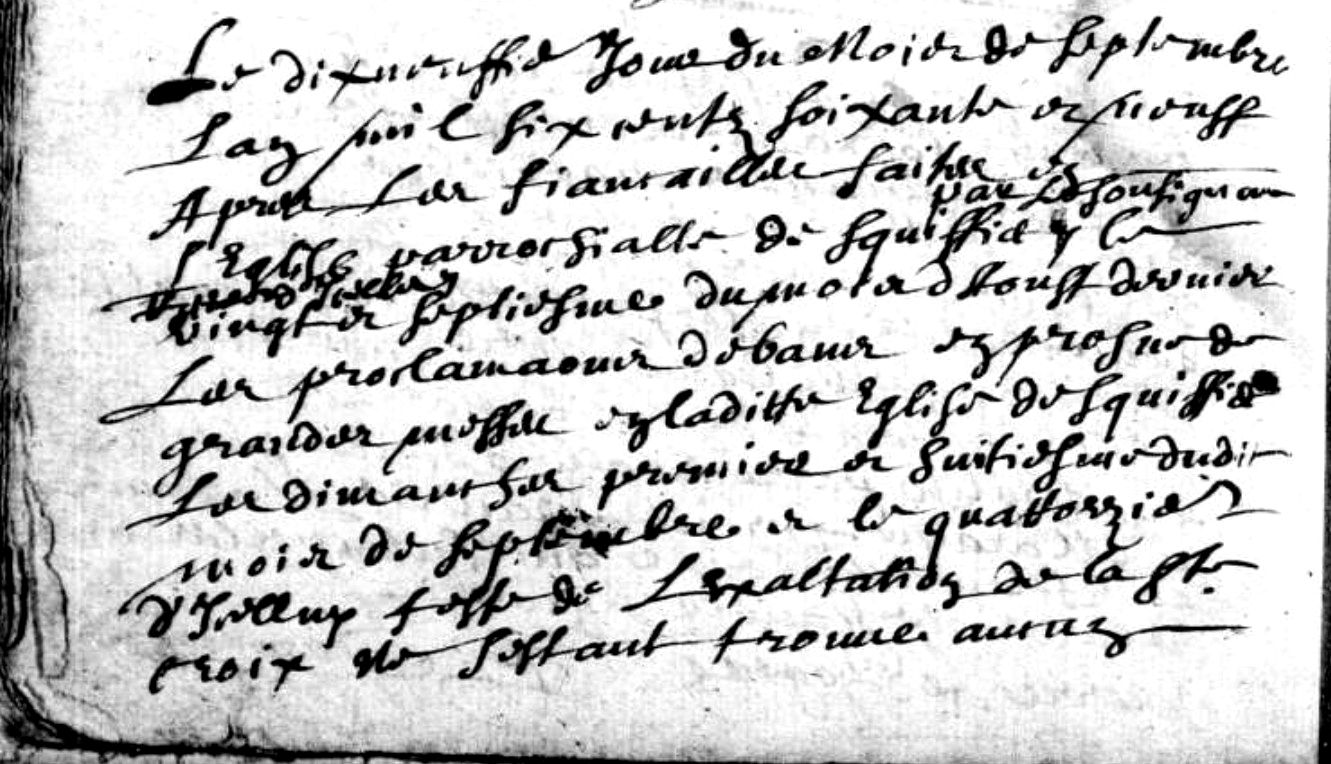 Le dixneuffie Jour du Mois de septembre
Lan mil six centz soixante et neuff
Apres Les fiancailles faites en
par Le soubsignan
l'Eglise parrochialle de squiffiec le
vingt et septiesme du mois d'Aoust dernier
Les proclamaons de bans en prosne de
grandes messes en laditte Eglise de squiffiec
Les dimanches premier et huitiesme dudit
mois de septembre et le quattorzie
d'Icelluy feste de Lexaltation de la Ste
croix Ne sestant trouve aucun